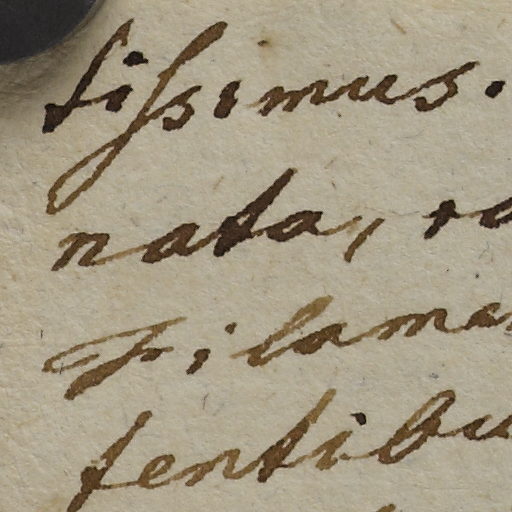 tissimus.
nata, re
Filamen
tentibu